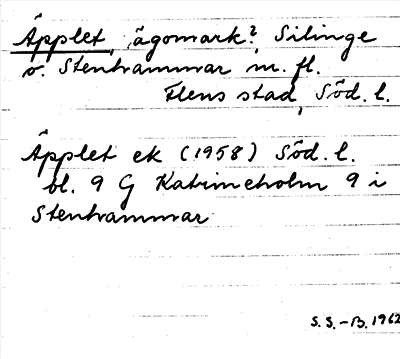 Äpplet, ägomark?, Silinge
o. Stenhammar m. fl.
Flens stad, Söd. l.
Äpplet ek (1958) Söd. l.
bl. 9 G Katrineholm 9 i
Stenhammar
S.S.-B. 1962